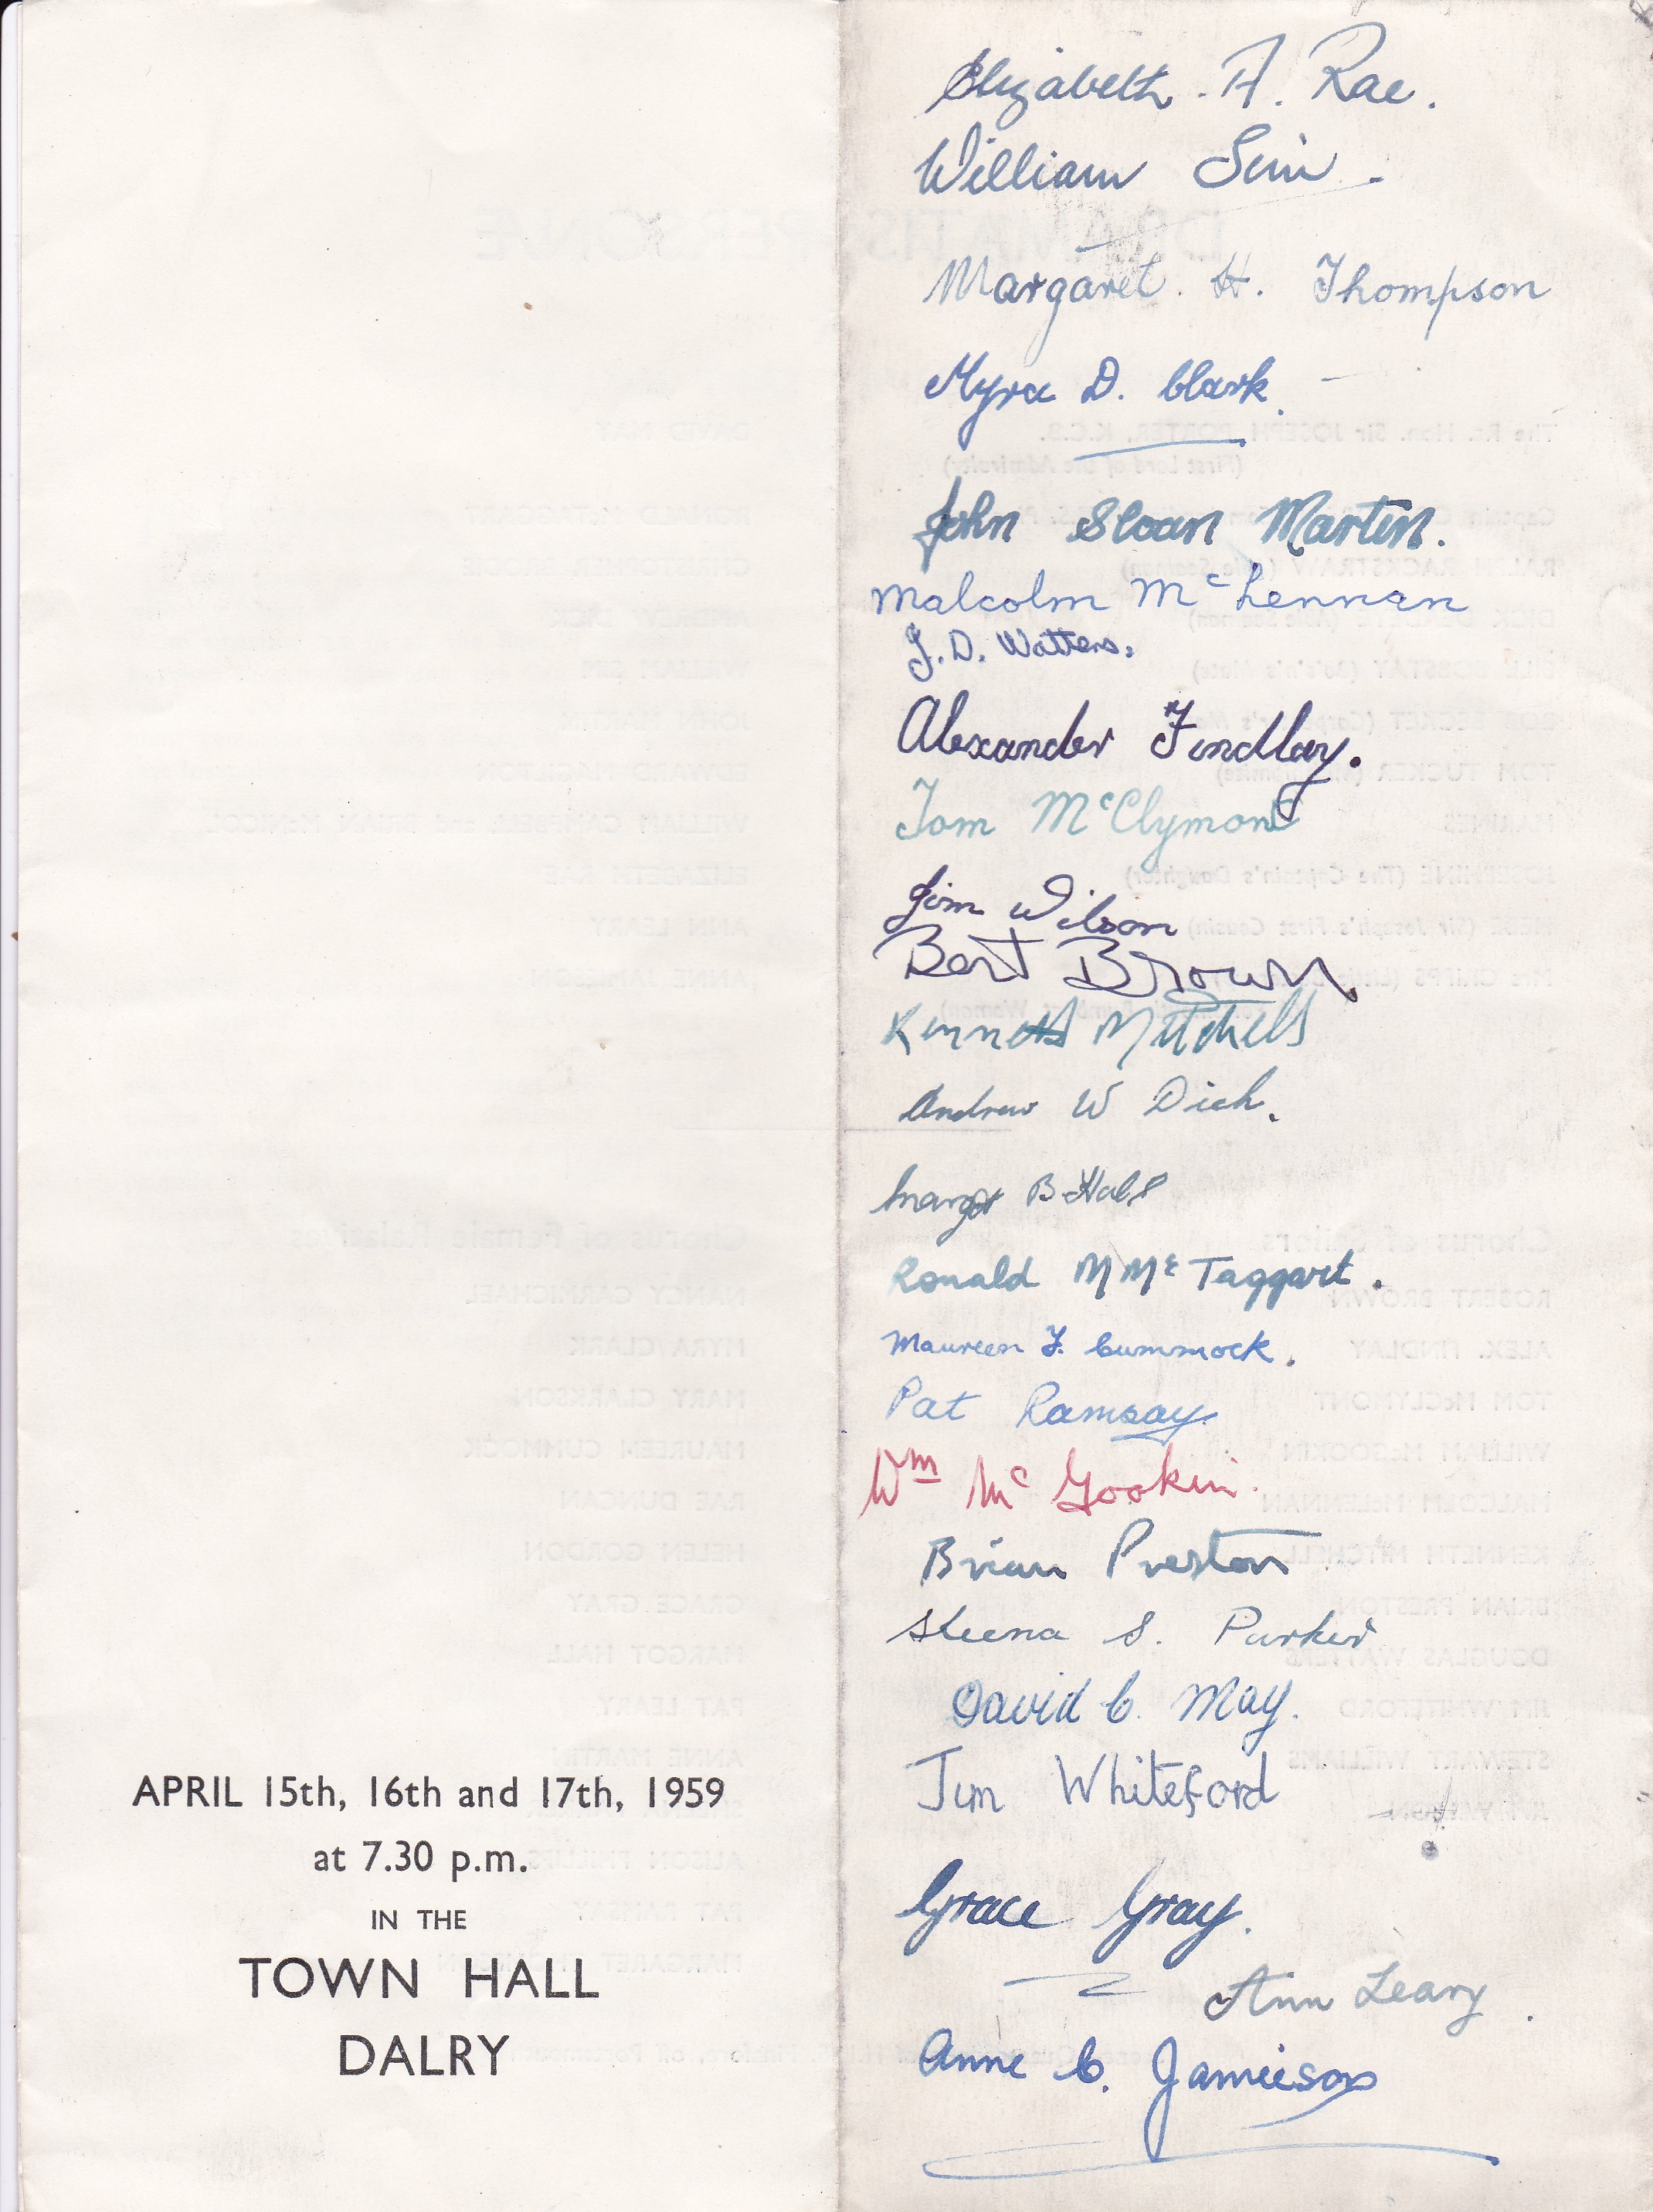 APRIL 15th, 16th and 17th, 1959
at 7.30 p.m.
IN THE
TOWN HALL
DALRY
Elizabeth A. Rae.
William Sim.
Margaret H. Thompson
Myra D. Clark.
John Sloan Martin.
Malcolm McLennan
J. D. Watters.
Alexander Findlay.
Tom McClymont
Jim Wilson
Bert Brown.
Kenneth Mitchell
Andrew W Dick.
Margot B Hall
Ronald M McTaggart.
Maureen F. Cummock.
Pat Ramsay
Wm McGookin.
Brian Preston
Sheena S. Parker
David C. May.
Jim Whiteford
Grace Gray.
Ann Leary.
Anne C. Jamieson